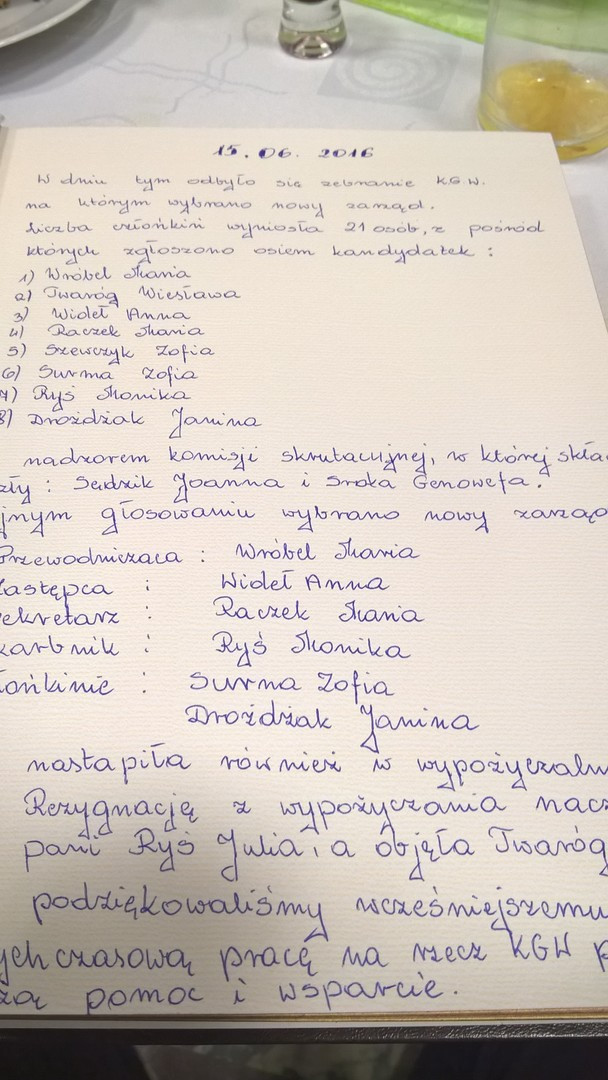 15.06.2016
W dniu tym odbyło się zebranie K.G.W.
na którym wybrano nowy zarząd.
Liczba członkiń wyniosła 21 osób, z pośród
których zgłoszono osiem kandydatek :
1) Wróbel Maria
2) Twaróg Wiesława
3) Wideł Anna
4) Raczek Maria
5) Szewczyk Zofia
6) Surma Zofia
7) Ryś Monika
8) Drożdżak Janina
nadzorem komisji skrutacyjnej, w której skła
zły : Sadzik Joanna i Sroka Genowefa.
jnym głosowaniu wybrano nowy zarząd
Przewodnicząca : Wróbel Maria
Zastępca : Wideł Anna
ekretarz : Raczek Maria
karbnik : Ryś Monika
łonkinie : Surma Zofia
Drożdżak Janina
nastąpiła również w wypożyczaln
Rezygnację z wypożyczania nacz
pani Ryś Julia, a objęła Twaróg
podziękowaliśmy wcześniejszemu
ychczasową pracę na rzecz KGW p
zą pomoc i wsparcie.